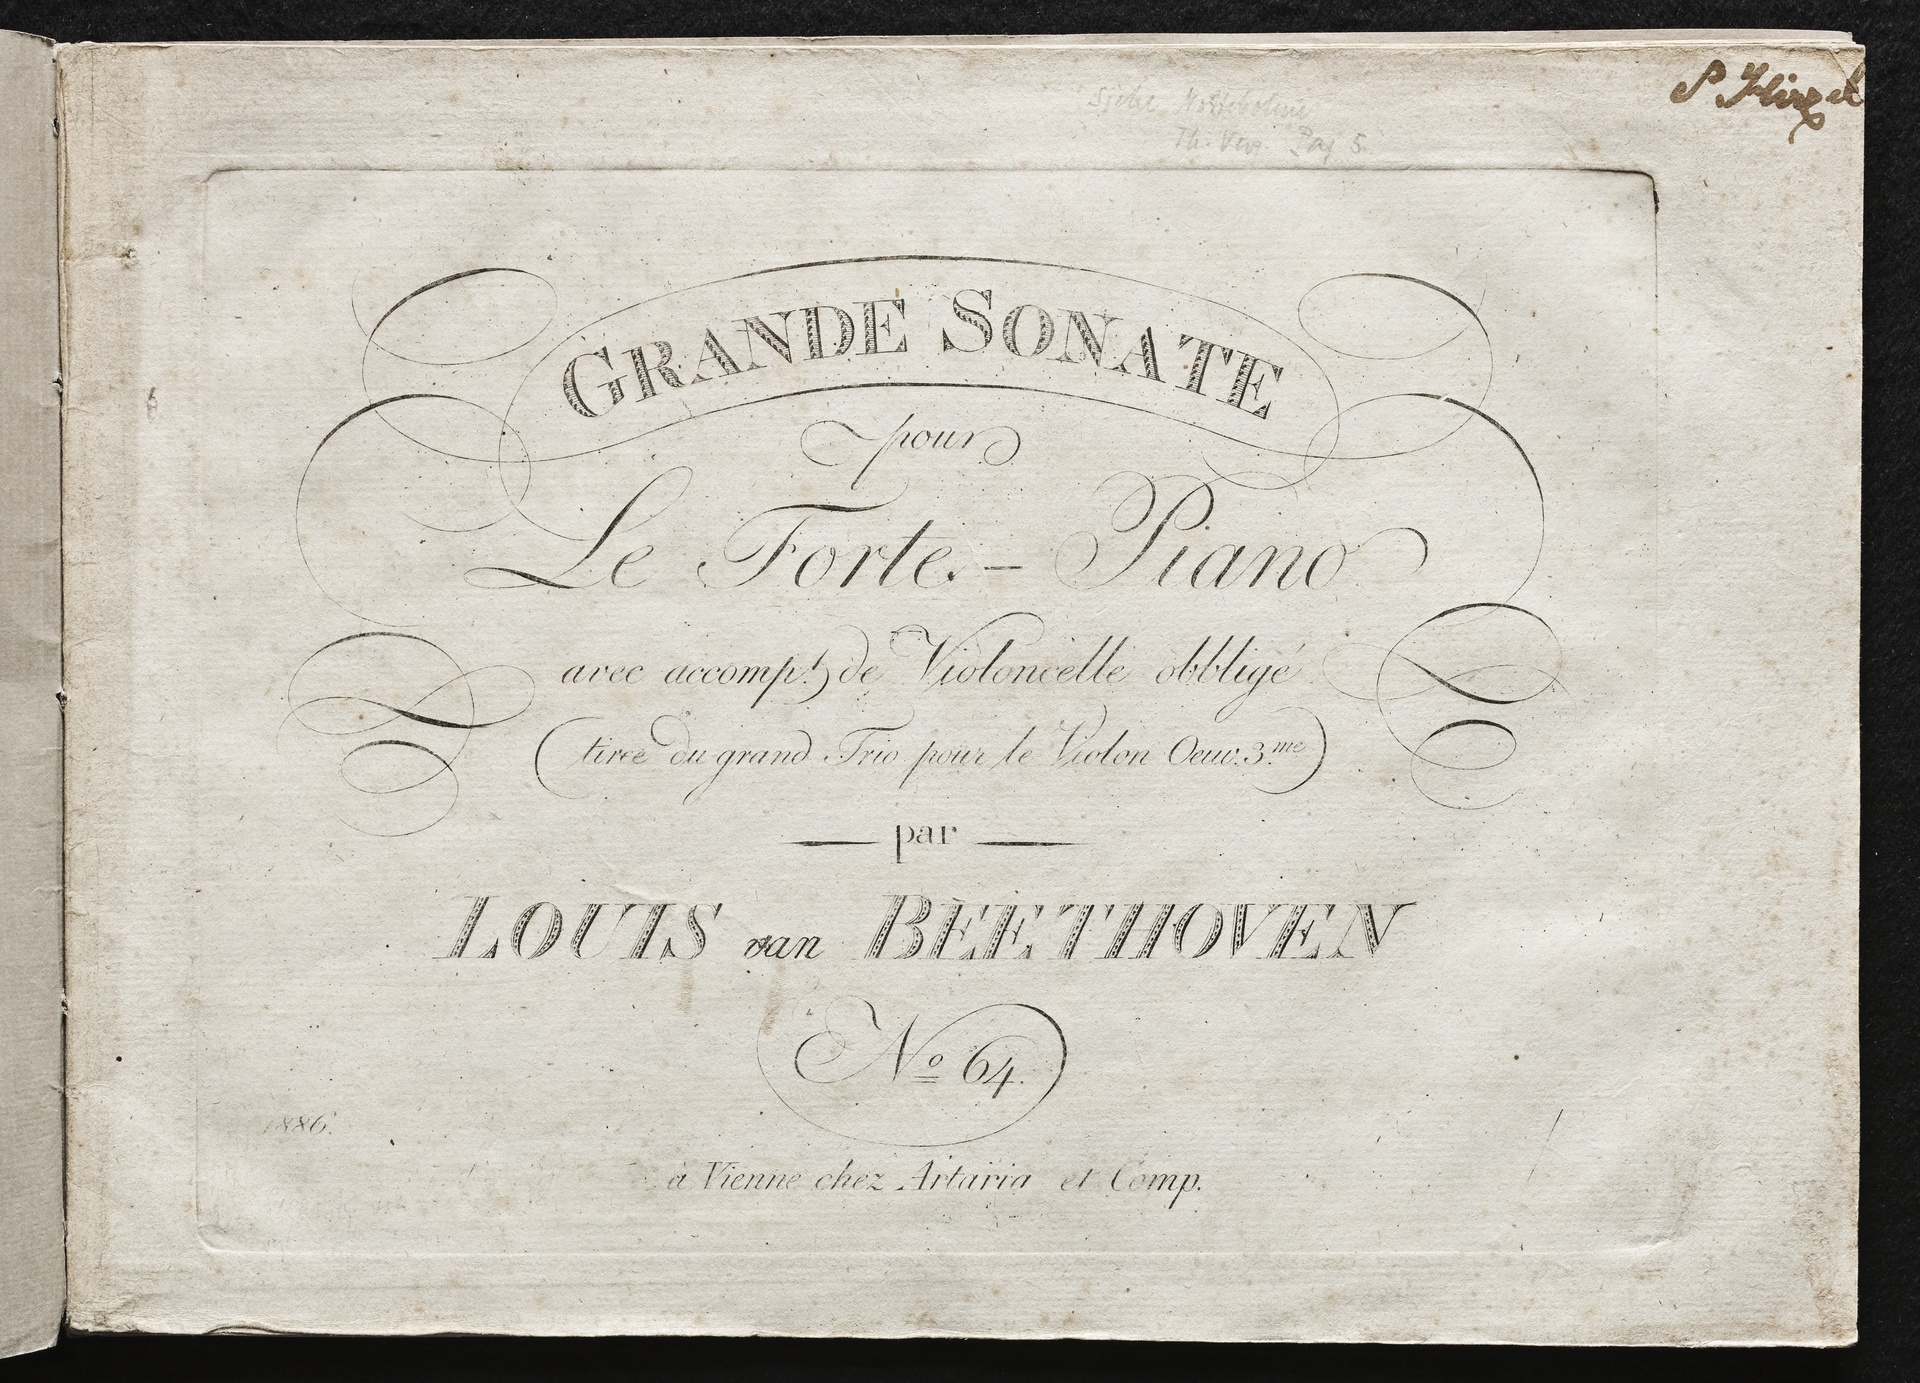 P Hirzel
Siehe Nottebohm
Th. Verz. Pag 5.
GRANDE SONATE
pour
Le Forte-Piano
avec accomp.t de Violoncelle obbligé
(tirée du grand Trio pour le Violon Oeuv. 3.me)
— par —
LOUIS van BEETHOVEN
No 64.
1886.
à Vienne chez Artaria et Comp.